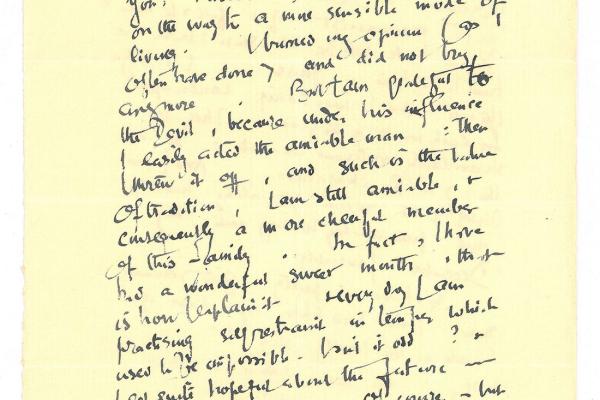 you.
on the way to a more sensible mode of
living. I burned my opium (as I
often have done) and did not buy
anymore. But I am grateful to
the Devil, because under his influence
I easily acted the amiable man : then
I threw it off, and such is the value
of tradition, I am still amiable, &
consequently a more cheerful member
of this family. In fact, I have
had a wonderful sweet month, that
is how I explain it every day I am
practising self restraint in temper which
used to be impossible. Isn't it odd? &
I am quite hopeful about the future —
of course - but